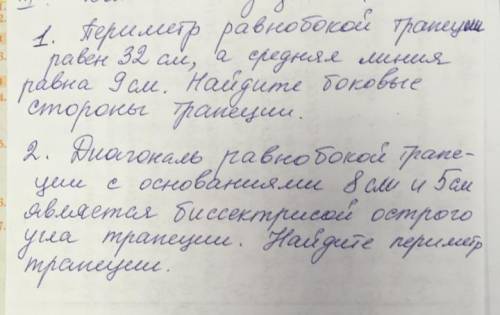 1. Периметр равнобокой трапеции
равен 32 см, а средняя линия
равна 9 см. Найдите боковые
стороны трапеции.
2. Диагональ равнобокой трапе-
ции с основаниями 8 см и 5 см
является биссектрисой острого
угла трапеции. Найдите периметр
трапеции.